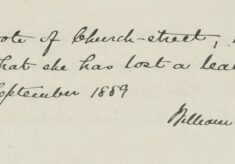 ote of Church-street,
that she has lost a lea
September 1889
William